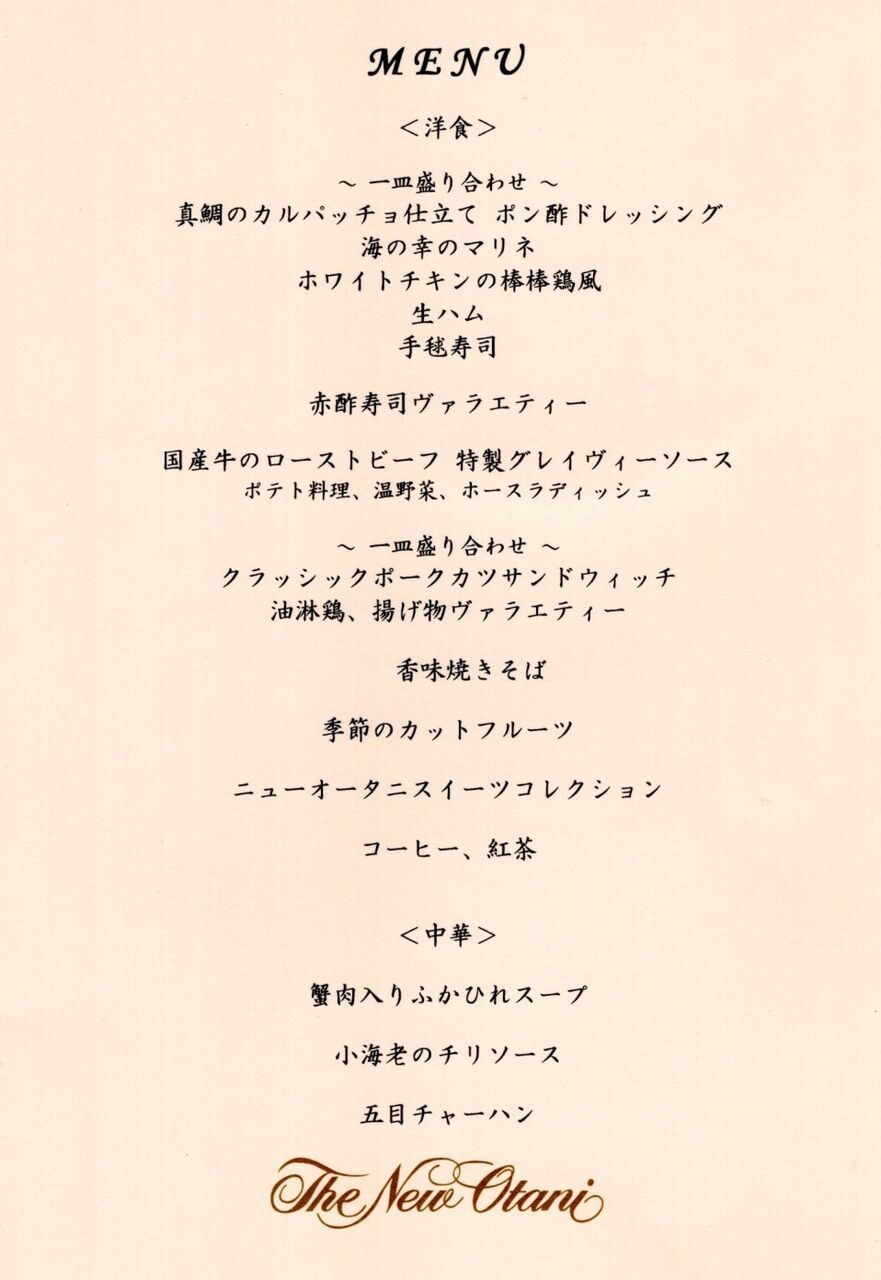 MENU
＜洋食＞
～ 一皿盛り合わせ ～
真鯛のカルパッチョ仕立て ポン酢ドレッシング
海の幸のマリネ
ホワイトチキンの棒棒鶏風
生ハム
手毬寿司
赤酢寿司ヴァラエティー
国産牛のローストビーフ 特製グレイヴィーソース
ポテト料理、温野菜、ホースラディッシュ
～ 一皿盛り合わせ ～
クラッシックポークカツサンドウィッチ
油淋鶏、揚げ物ヴァラエティー
香味焼きそば
季節のカットフルーツ
ニューオータニスイーツコレクション
コーヒー、紅茶
＜中華＞
蟹肉入りふかひれスープ
小海老のチリソース
五目チャーハン
The New Otani